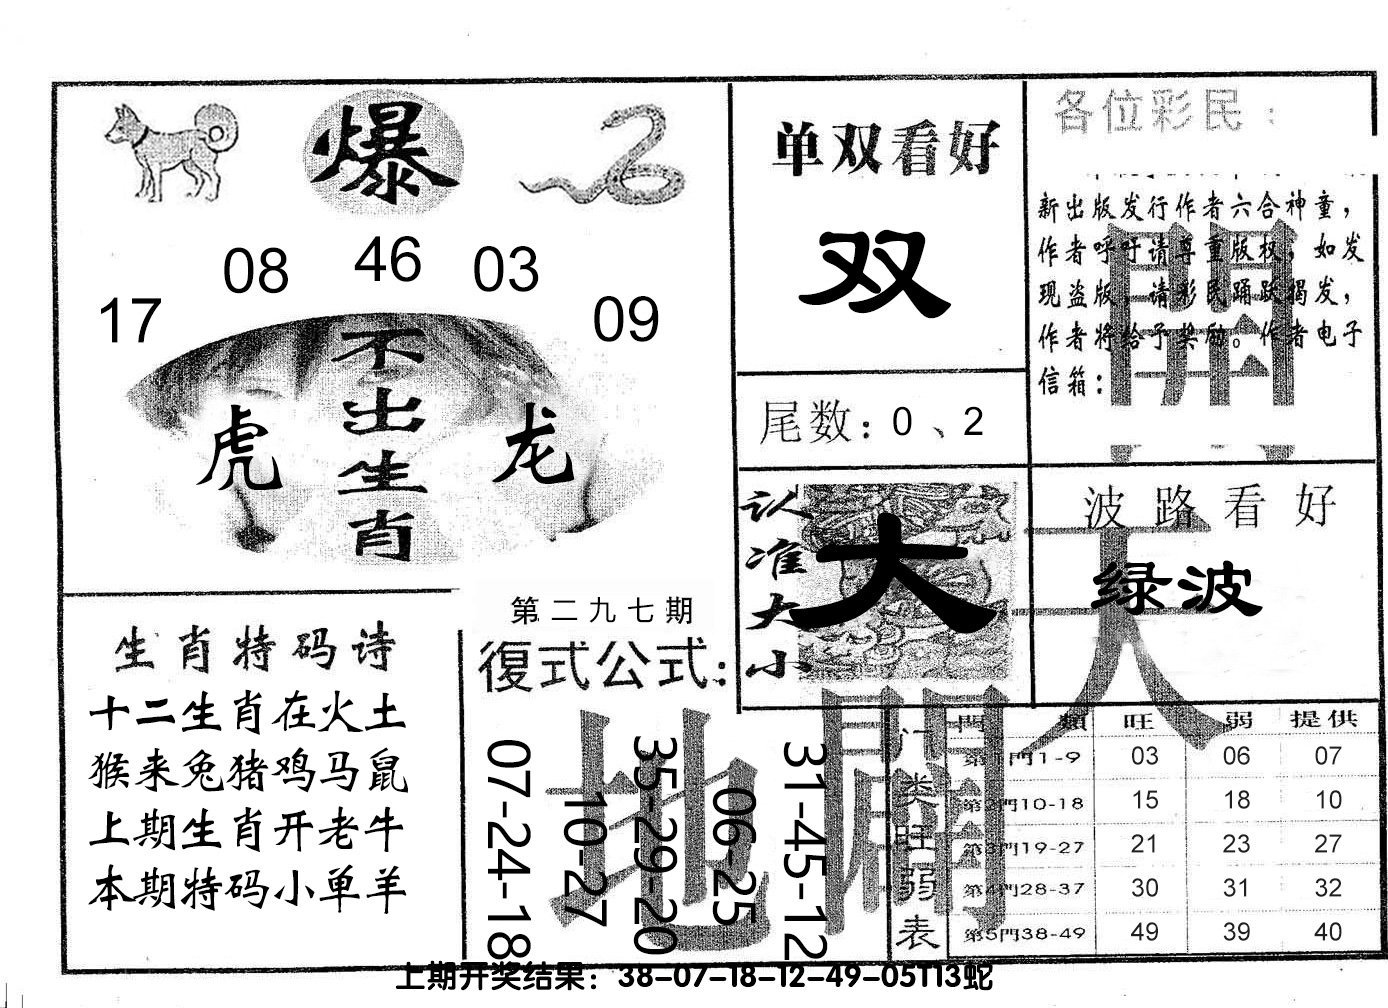 爆
17 08 46 03 09
不出生肖
虎 龙
生肖特码诗
十二生肖在火土
猴来兔猪鸡马鼠
上期生肖开老牛
本期特码小单羊
第二九七期
復式公式:
07-24-18
10-27
35-29-20
06-25
31-45-12
单双看好
双
尾数:0、2
认准大小
大
各位彩民:
新出版发行作者六合神童,
作者呼吁请尊重版权,如发
现盗版,请彩民踊跃揭发,
作者将给予奖励。作者电子
信箱:
波路看好
绿波
天
地
開
门类旺弱表
門類 旺 弱 提供
第1門1-9 03 06 07
第2門10-18 15 18 10
第3門19-27 21 23 27
第4門28-37 30 31 32
第5門38-49 49 39 40
上期开奖结果:38-07-18-12-49-05T13蛇